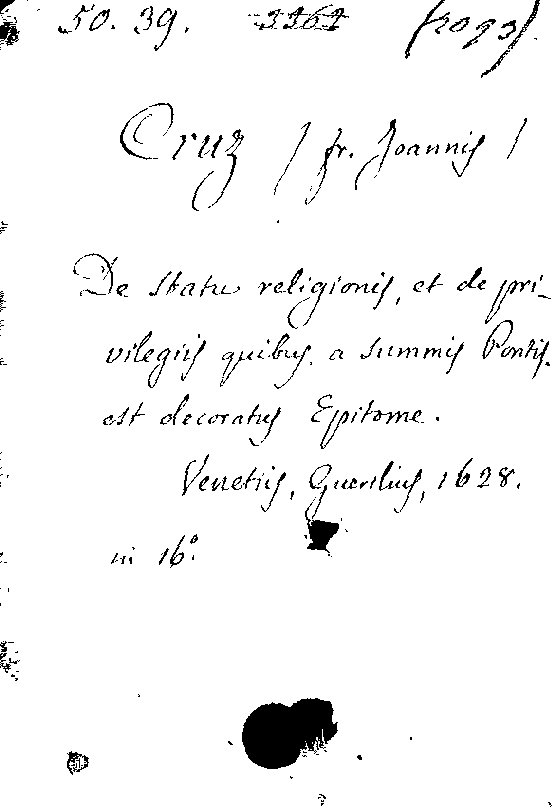 50. 39. 3362 (2093).
Cruz / fr. Joannis /
De statu religionis, et de pri-
vilegiis quibus a summis Pontif.
est decoratus Epitome.
Venetiis, Guerilius, 1628.
in 16º.